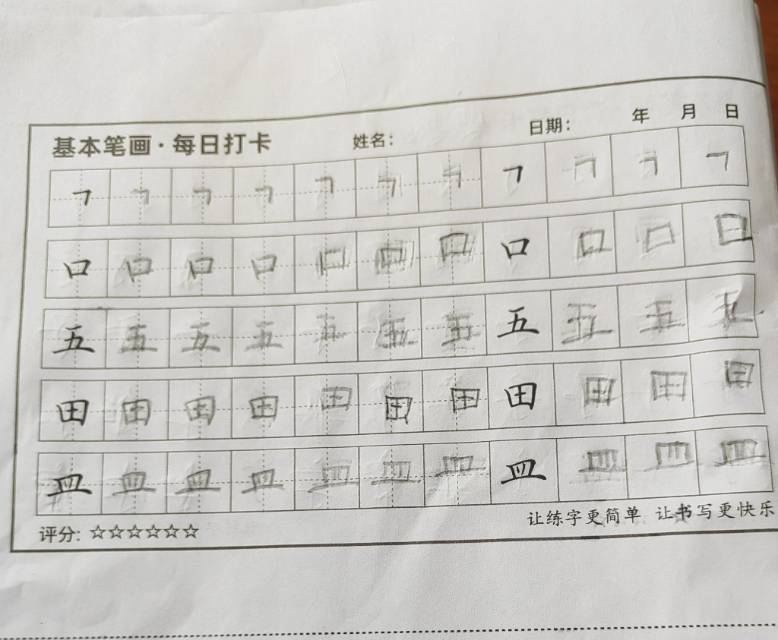 基本笔画·每日打卡 姓名： 日期： 年 月 日
㇕ ㇕ ㇕ ㇕ ㇕ ㇕ ㇕ ㇕ ㇕ ㇕ ㇕
口 口 口 口 口 口 口 口 口 口 口
五 五 五 五 五 五 五 五 五 五 五
田 田 田 田 田 田 田 田 田 田 田
皿 皿 皿 皿 皿 皿 皿 皿 皿 皿 皿
评分：☆☆☆☆☆☆ 让练字更简单 让书写更快乐